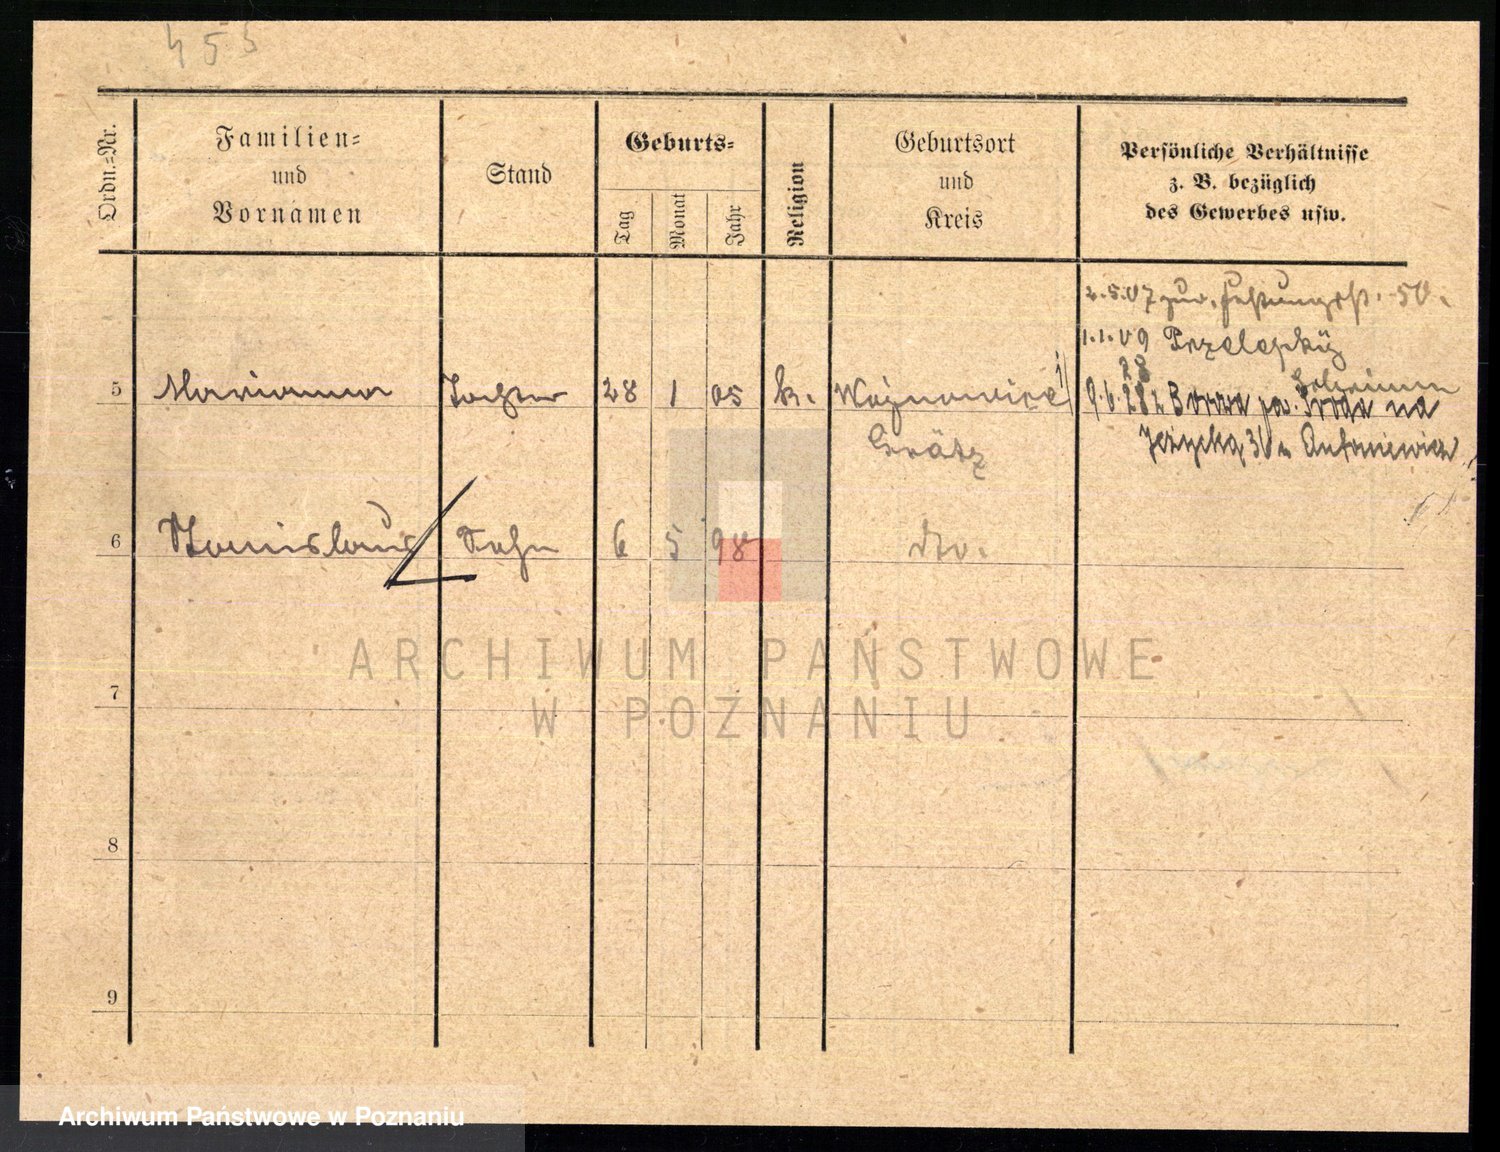 455
Ordn.-Nr.
Familien-
und
Vornamen
Stand
Geburts-
Tag
Monat
Jahr
Religion
Geburtsort
und
Kreis
Persönliche Verhältnisse
z. B. bezüglich
des Gewerbes usw.
2.5.07 zur. Festungsst. 50.
1.1.09
28
5 Marianna Tochter 28 1 05 k. Wojnowice 1) 9.6.28 z Borowa pow. Środa na
Grätz Jeżycka 36 u Antoniewicz
6 Stanislaus Sohn 6 5 98 dto.
7
8
9
ARCHIWUM PAŃSTWOWE
W POZNANIU
Archiwum Państwowe w Poznaniu